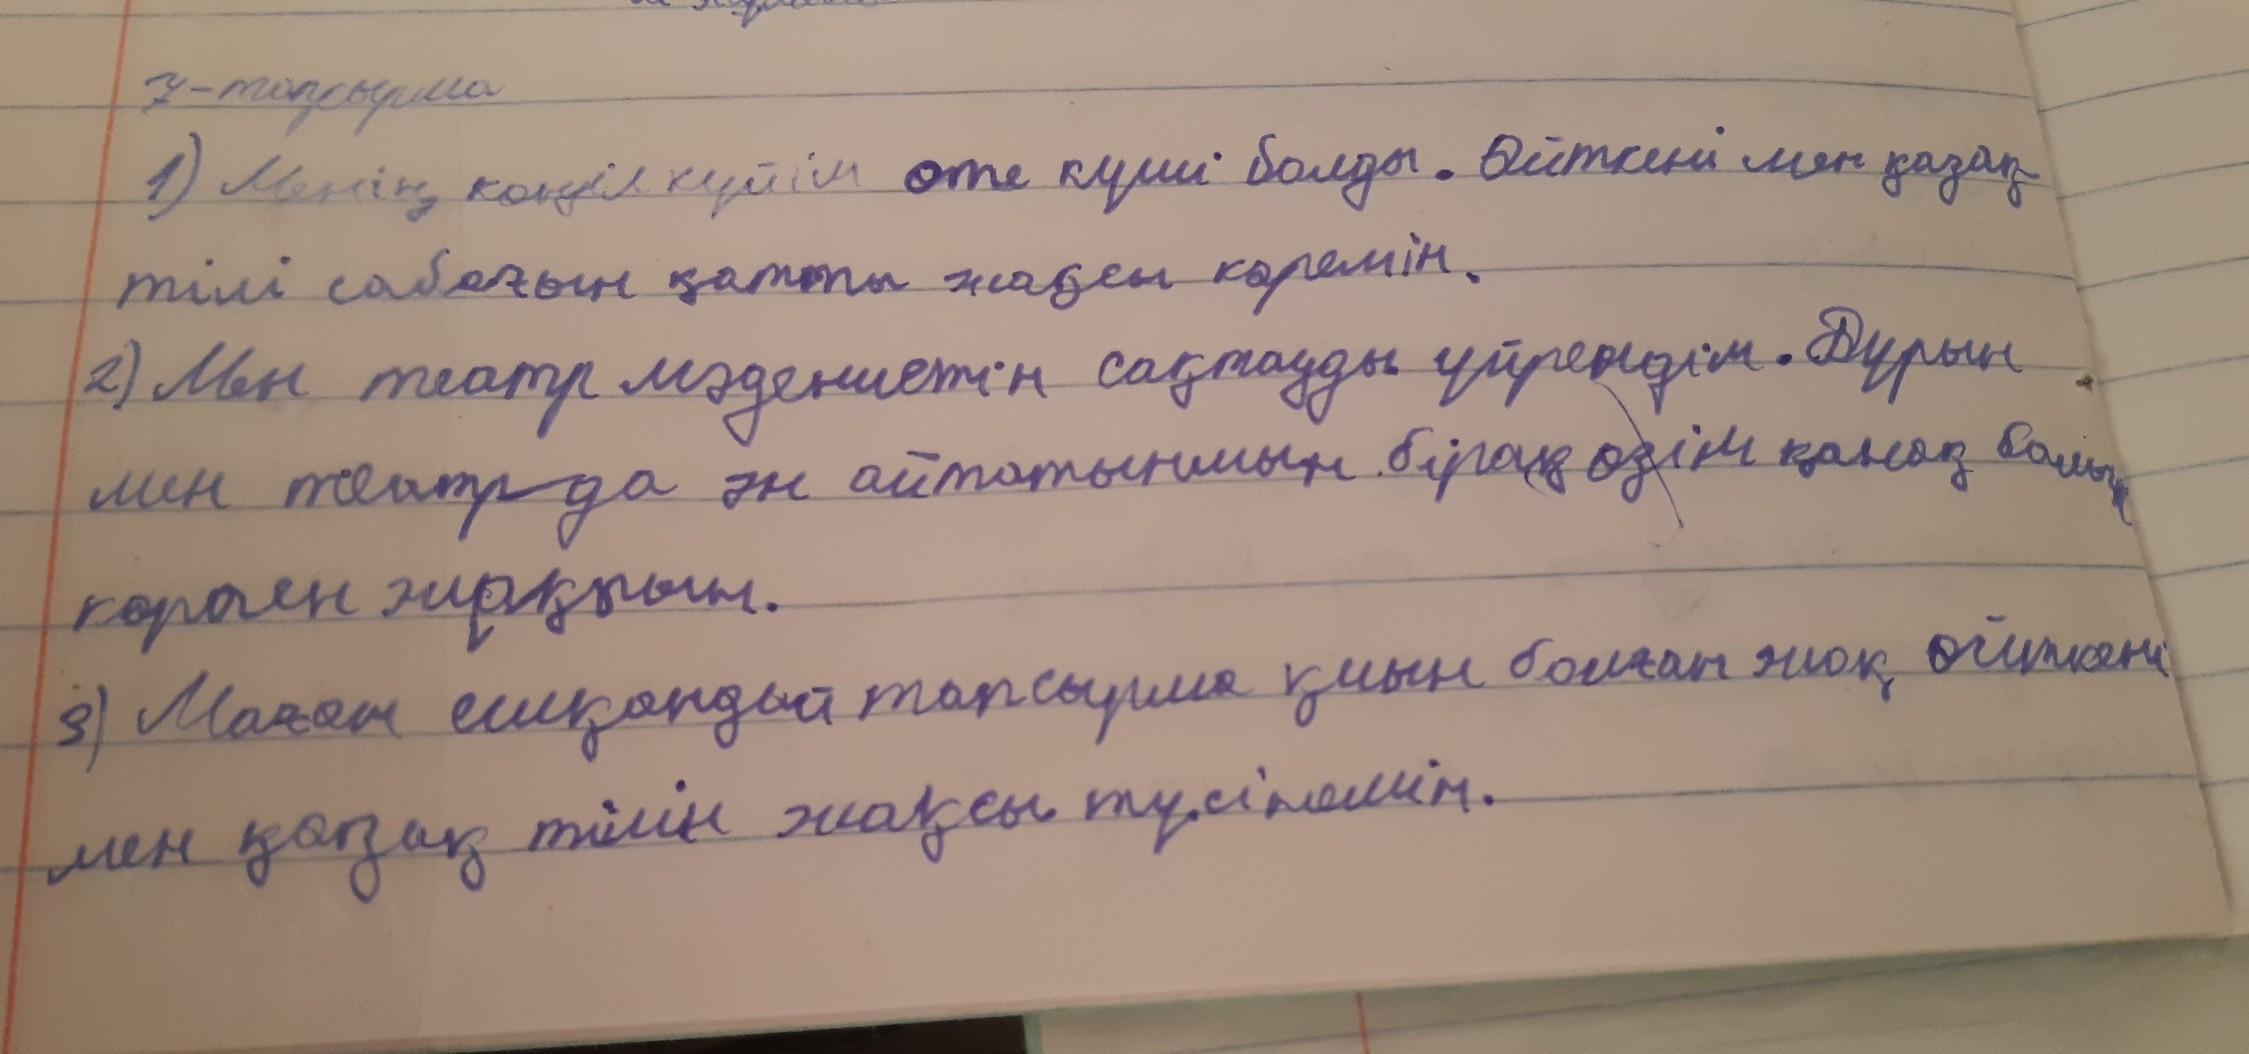 7-тапсырма
1) Менің көңіл күйім өте күші болды. Өйткені мен қазақ
тілі сабағын қатты жақсы көремін.
2) Мен театр мәдениетін сақтауды үйрендім. Бұрын
мен театрда ән айтатынмын бірақ өзім қонақ болып
көрген
3) Маған ешқандай тапсырма қиын болған жоқ өйткені
мен қазақ тілін жақсы түсінемін.